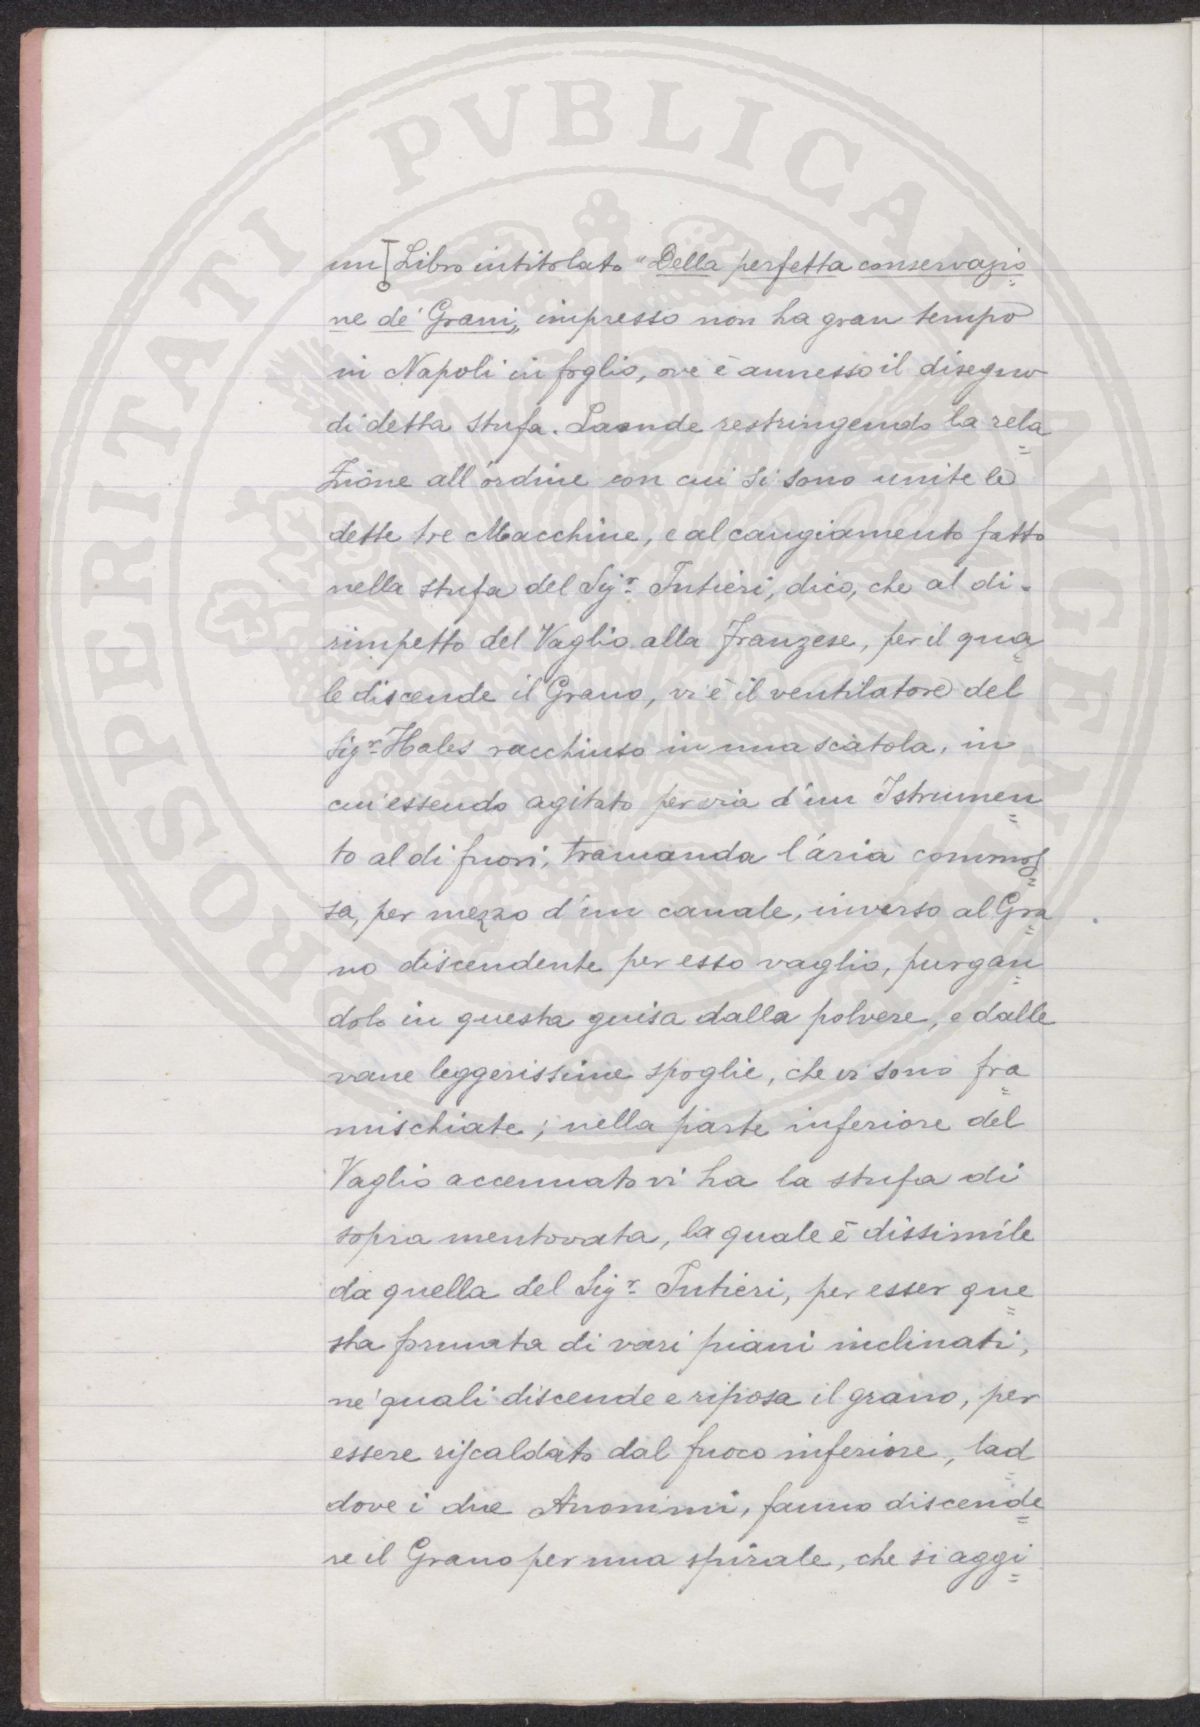 PROSPERITATI PVBLICAE AVGENDAE
un Libro intitolato "Della perfetta conservazio
ne de' Grani„ impresso non ha gran tempo
in Napoli in foglio, ove è annesso il disegno
di detta stufa. Laonde restringendo la rela
zione all'ordine con cui si sono unite le
dette tre Macchine, e al cangiamento fatto
nella stufa del Sigr. Intieri, dico, che al di-
rimpetto del Vaglio alla Franzese, per il qua
le discende il Grano, vi è il ventilatore del
Sigr. Hales racchiuso in una scatola, in
cui essendo agitato per via d'un Istrumen
to al di fuori, tramanda l'aria commos
sa, per mezzo d'un canale, inverso al Gra
no discendente per esso vaglio, purgan
dolo in questa guisa dalla polvere, e dalle
vane leggerissime spoglie, che vi sono fra
mischiate; nella parte inferiore del
Vaglio accennato vi ha la stufa di
sopra mentovata, la quale è dissimile
da quella del Sigr. Intieri, per esser que
sta formata di vari piani inclinati,
ne' quali discende e riposa il grano, per
essere riscaldato dal fuoco inferiore, lad
dove i due Anonimi, fanno discende
re il Grano per una spirale, che si aggi